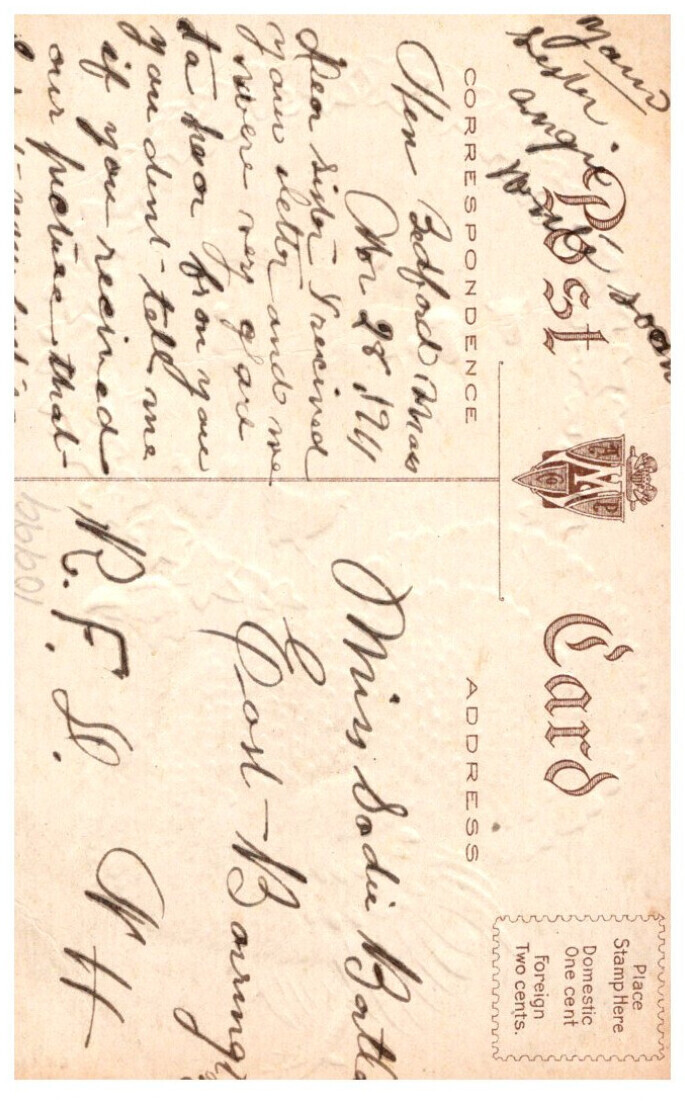 Post Card
CORRESPONDENCE
ADDRESS
Place
Stamp Here
Domestic
One cent
Foreign
Two cents.
New Bedford Mass
Nov 28, 1911
Dear Sister I recived
your letter and we
were very glad
to hear from you
you dent tell me
if you recived
our picture that
yours
Sister
angie
soon
Miss Sadie
East
R. F. D. N H
109991